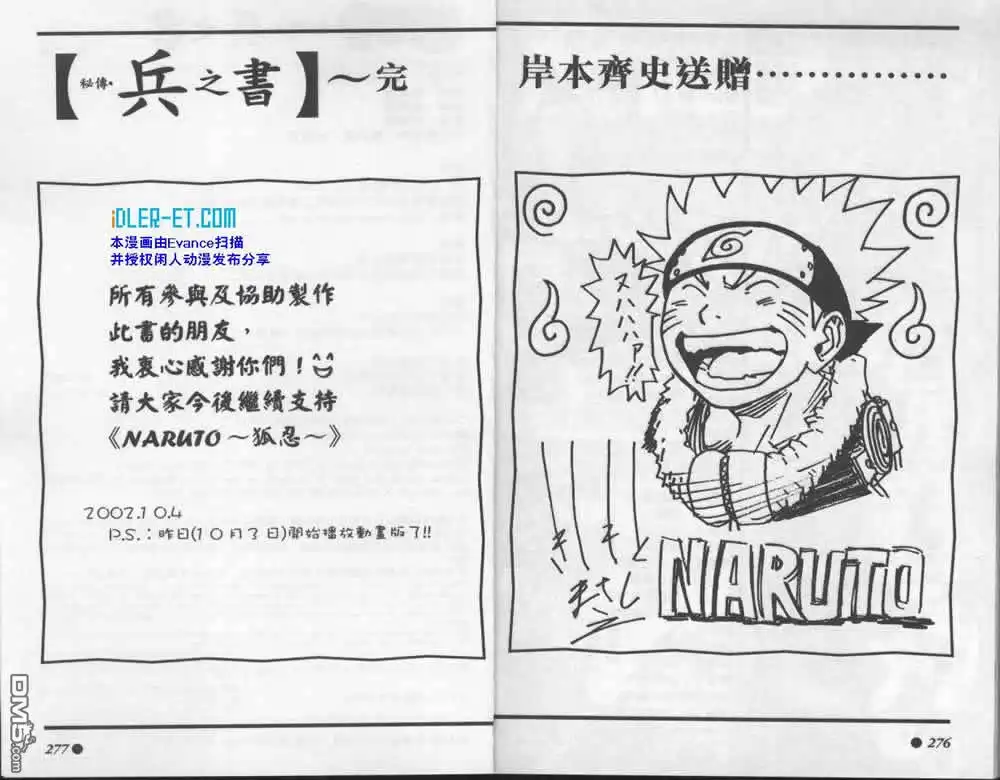 岸本齊史送贈……………
ヌハハハァ!!
きしもと
まさし
NARUTO
276
【秘傳·兵之書】~完
iDLER-ET.COM
本漫画由Evance扫描
并授权闲人动漫发布分享
所有參與及協助製作
此書的朋友,
我衷心感謝你們!
請大家今後繼續支持
《NARUTO~狐忍~》
2002.10.4
P.S.:昨日(10月3日)開始播放動畫版了!!
277
DM5.com